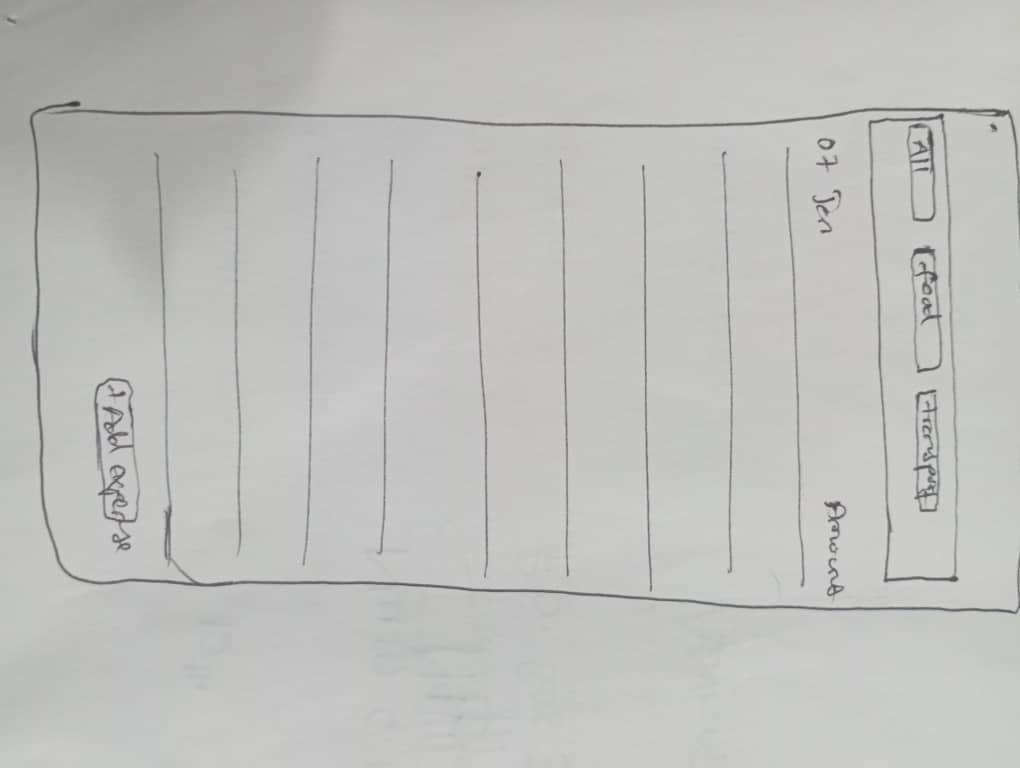 All food transport
07 Jan Amount
+ Add expense